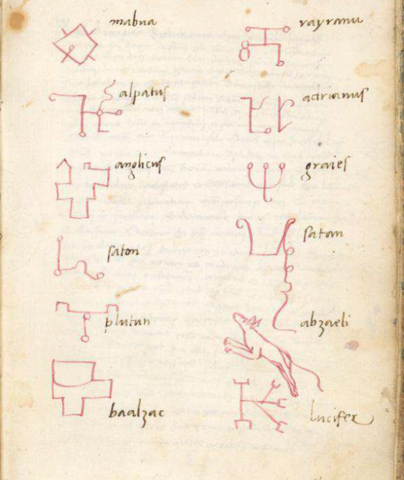 mabua
rayranu
alpatus
adrianus
anglicus
graies
saton
satan
plutun
abzaeli
baalzac
lucifer